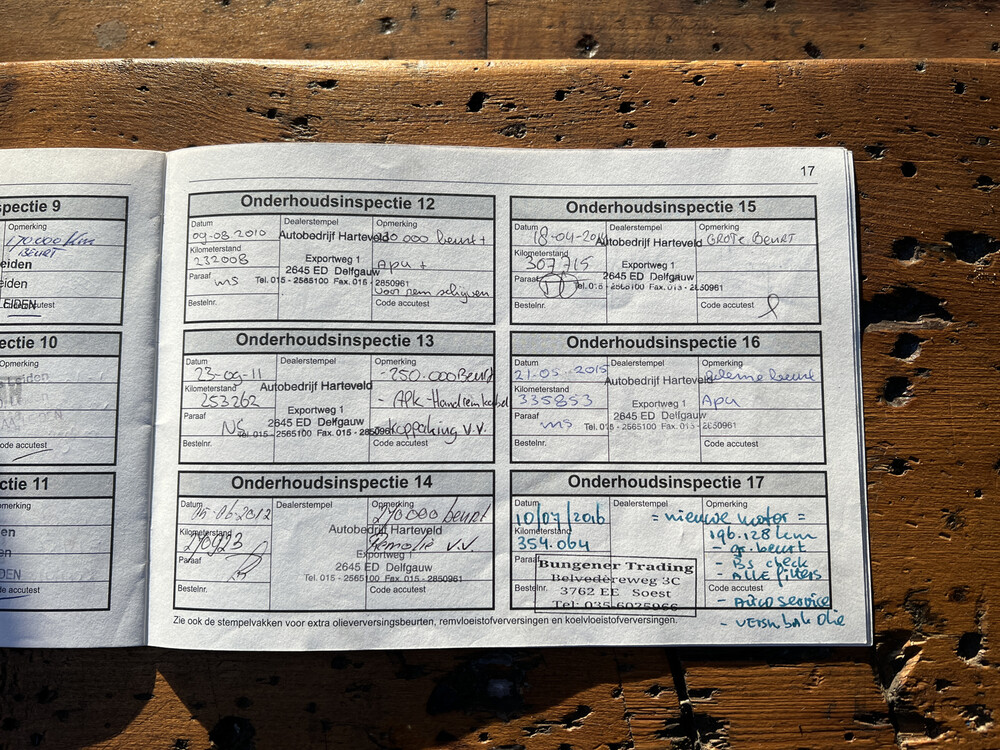 17
spectie 9
Opmerking
170.000 km
BEURT
eiden
eiden
LEIDEN
Code accutest
ectie 10
Opmerking
eiden
ode accutest
ctie 11
Opmerking
en
en
EN
e accutest
Onderhoudsinspectie 12
Datum
Dealerstempel
Opmerking
09-08.2010
Autobedrijf Harteveld
000 beurt +
Kilometerstand
232008
Exportweg 1
2645 ED Delfgau
APU +
Paraaf
ms
Tel. 015 - 2565100 Fax. 015 - 2850961
voor rem schijven
Bestelnr.
Code accutest
Onderhoudsinspectie 13
Datum
Dealerstempel
Opmerking
23-09-11
Autobedrijf Harteveld
-250.000 Beurt
Kilometerstand
253262
Exportweg 1
2645 ED Delfgauw
- APK - Handremkabel
Paraaf
NS
Tel. 015 - 2565100 Fax. 015 - 2850961
koppakking v.v.
Bestelnr.
Code accutest
Onderhoudsinspectie 14
Datum
Dealerstempel
Opmerking
05-06-2012
270000 beurt
Autobedrijf Harteveld
Kilometerstand
Remolie v.v.
Exportweg 1
Paraaf
2645 ED Delfgauw
Tel. 015 - 2565100 Fax. 015 - 2850961
Bestelnr.
Code accutest
Onderhoudsinspectie 15
Datum
Dealerstempel
Opmerking
18-04-2014
Autobedrijf Harteveld
GROTE BEURT
Kilometerstand
307715
Exportweg 1
2645 ED Delfgauw
Paraaf
Tel. 015 - 2565100 Fax. 015 - 2850961
Bestelnr.
Code accutest
Onderhoudsinspectie 16
Datum
Dealerstempel
Opmerking
21-05-2015
Autobedrijf Harteveld
kleine beurt
Kilometerstand
335853
Exportweg 1
2645 ED Delfgauw
APU
Paraaf
ms
Tel. 015 - 2565100 Fax. 015 - 2850961
Bestelnr.
Code accutest
Onderhoudsinspectie 17
Datum
Dealerstempel
Opmerking
10/07/2016
= nieuwe motor =
Kilometerstand
196.128 km
354.064
- gr. beurt
Paraaf
Bungener Trading
- BS check
Belvedèreweg 3C
- ALLE filters
Bestelnr.
3762 EE Soest
Code accutest
Tel: 035-6025966
- AIRCO service
- versn.bak olie
Zie ook de stempelvakken voor extra olieverversingsbeurten, remvloeistofverversingen en koelvloeistofverversingen.